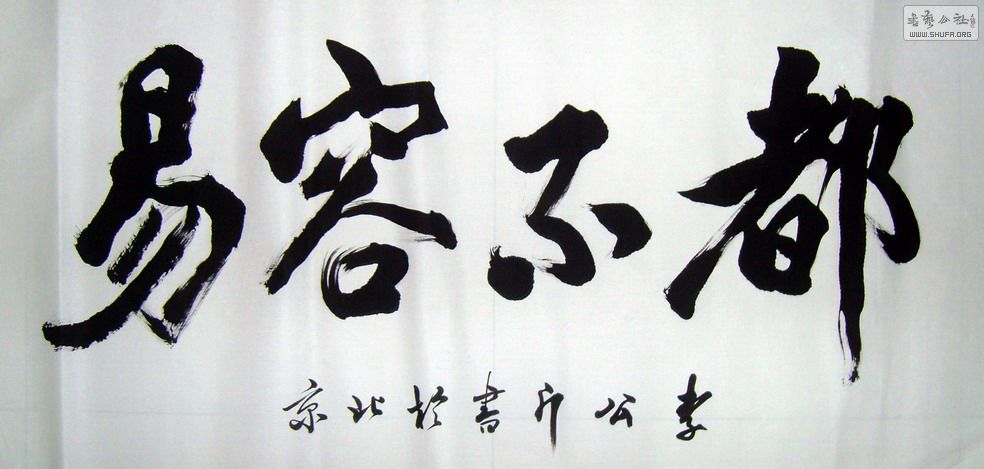 都不容易
李公斤書於北京
書藝公社
WWW.SHUFA.ORG